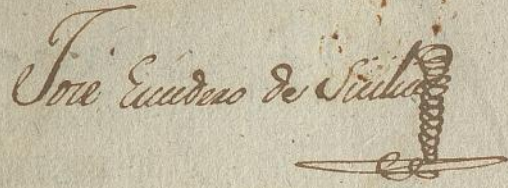 José Escudero de Sicilia